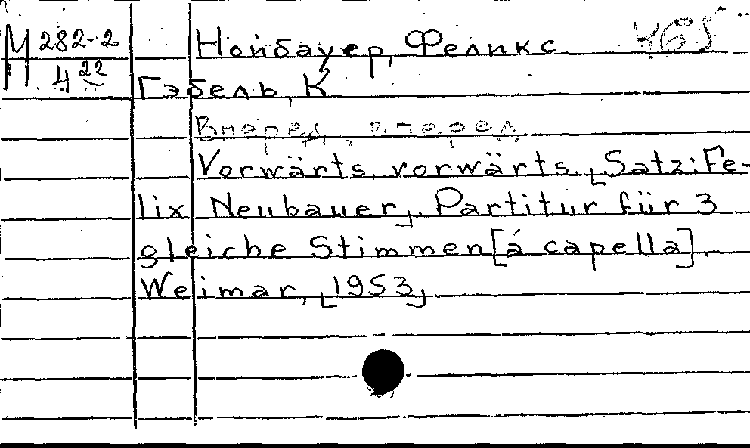 М 282-2 Нойбауер, Феликс 465
4 22
Гэбель, К
Вперед, вперед
Vorwärts, vorwärts. [Satz: Fe-
lix Neubauer]. Partitur für 3
gleiche Stimmen [á capella].
Weimar, [1953]